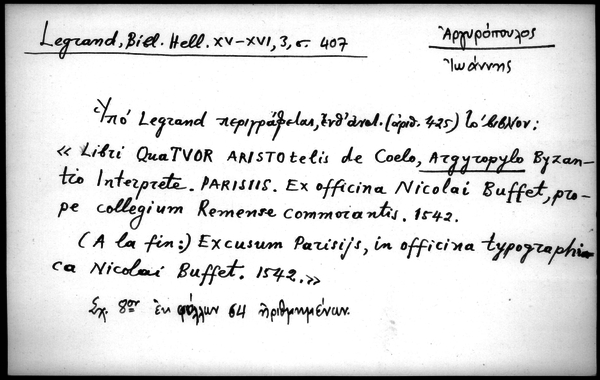 Legrand, Bibl. Hell. XV–XVI, 3, σ. 407
Ἀργυρόπουλος
Ἰωάννης
Ὑπό Legrand περιγράφεται, ἔνθ' ἀνωτ. (ἀριθ. 425) τὸ βιβλίον:
« Libri QuaTVOR ARISTOtelis de Coelo, Argyropylo Byzan-
tio Interprete. PARISIIS. Ex officina Nicolai Buffet, pro-
pe collegium Remense commorantis. 1542.
(A la fin:) Excusum Parisijs, in officina typographi-
ca Nicolai Buffet. 1542.»
Σχ. 8ον ἐκ φύλλων 64 ἠριθμημένων.